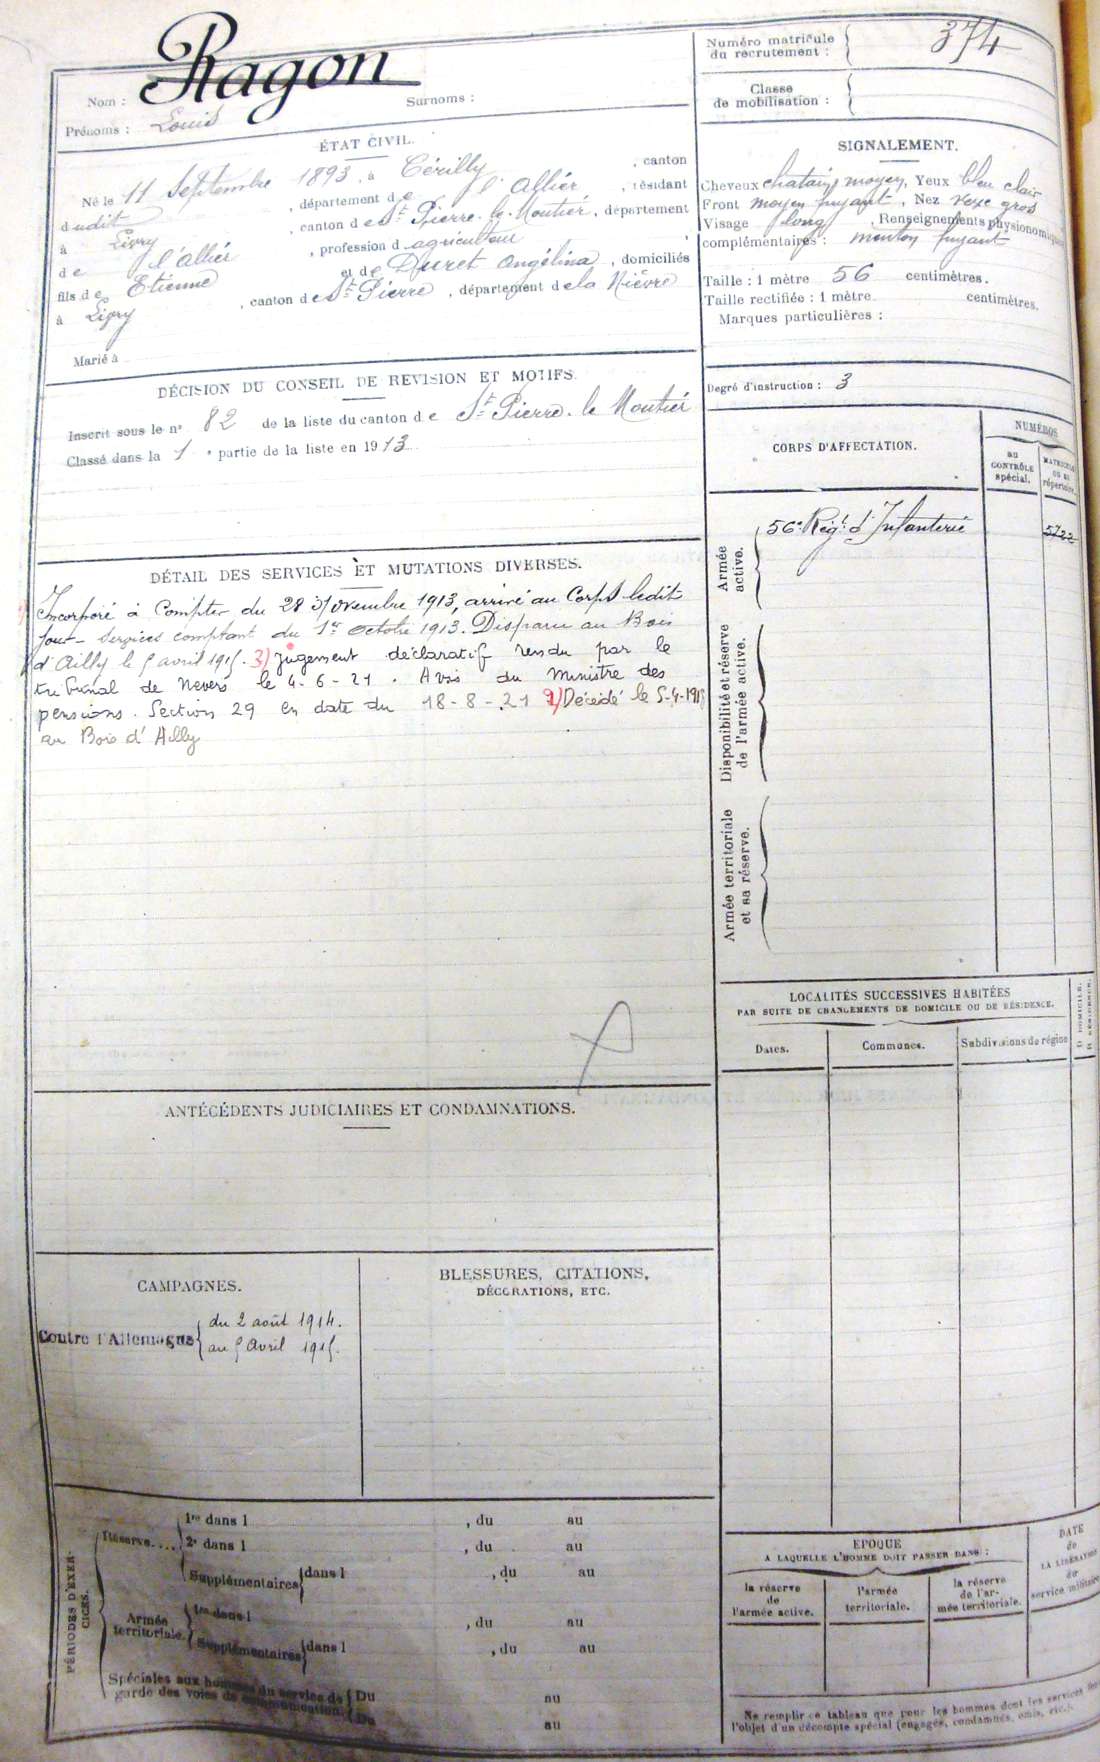 Nom : Ragon
Surnoms :
Prénoms : Louis
Numéro matricule
du recrutement : 374
Classe
de mobilisation :
ÉTAT CIVIL.
Né le 11 Septembre 1893, à Cérilly, canton
dudit, département de l'Allier, résidant
à Livry, canton de St Pierre-le-Moutier, département
de l'allier, profession d agriculteur
fils de Etienne et de Duret Angélina, domiciliés
à Livry, canton de St Pierre, département de la Nièvre
Marié à
SIGNALEMENT.
Cheveux chatains moyen, Yeux bleu clair
Front moyen fuyant, Nez vexe gros
Visage long, Renseignements physionomiques
complémentaires : menton fuyant
Taille : 1 mètre 56 centimètres.
Taille rectifiée : 1 mètre centimètres.
Marques particulières :
Degré d'instruction : 3
DÉCISION DU CONSEIL DE REVISION ET MOTIFS.
Inscrit sous le n° 82 de la liste du canton de St Pierre-le Moutier
Classé dans la 1 e partie de la liste en 1913
CORPS D'AFFECTATION.
NUMÉROS
au
CONTRÔLE
spécial.
MATRICULE
ou au
répertoire.
Armée
active.
56e Régt d'Infanterie
5722
Disponibilité et réserve
de l'armée active.
Armée territoriale
et sa réserve.
DÉTAIL DES SERVICES ET MUTATIONS DIVERSES.
Incorporé à Compter du 28 Novembre 1913, arrivé au Corps ledit
jour - Services comptant du 1er octobre 1913. Disparu au Bois
d'Ailly le 5 avril 1915. 3) Jugement déclaratif rendu par le
tribunal de Nevers le 4-6-21. Avis du Ministre des
pensions. Section 29 en date du 18-8-21 2) Décédé le 5-4-1915
au Bois d'Ailly
LOCALITÉS SUCCESSIVES HABITÉES
PAR SUITE DE CHANGEMENTS DE DOMICILE OU DE RÉSIDENCE.
Dates.
Communes.
Subdivisions de région
D. DOMICILE.
R. RÉSIDENCE.
ANTÉCÉDENTS JUDICIAIRES ET CONDAMNATIONS.
CAMPAGNES.
Contre l'Allemagne
du 2 août 1914.
au 5 Avril 1915.
BLESSURES, CITATIONS,
DÉCORATIONS, ETC.
PÉRIODES D'EXER-
CICES.
Réserve....
1re dans l , du au
2e dans l , du au
Supplémentaires dans l , du au
Armée
territoriale.
1re dans l , du au
Supplémentaires dans l , du au
Spéciales aux hommes du service de
garde des voies de communication.
Du au
Du au
EPOQUE
A LAQUELLE L'HOMME DOIT PASSER DANS :
la réserve
de
l'armée active.
l'armée
territoriale.
la réserve
de l'ar-
mée territoriale.
DATE
de
LA LIBÉRATION
du
service militaire
Ne remplir ce tableau que pour les hommes dont les services font
l'objet d'un décompte spécial (engagés, condamnés, omis, etc.).